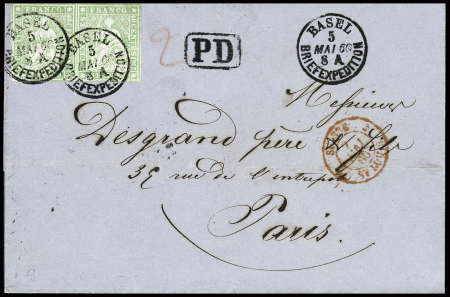 FRANCO FRANCO
BASEL
5
MAI 60
8 A
BRIEFEXPEDITION
BASEL
5
MAI 60
8 A
BRIEFEXPEDITION
PD
2
BASEL
5
MAI 60
8 A
BRIEFEXPEDITION
Messieurs
Desgrand père & fils
35 rue de l'entrepot
Paris.
SUISSE
ST LOUIS